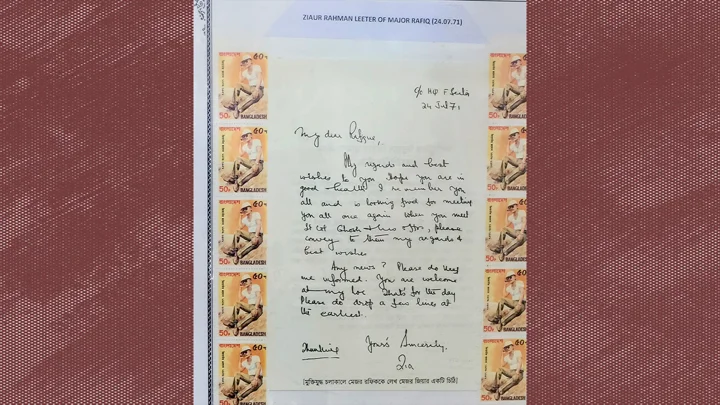 ZIAUR RAHMAN LEETER OF MAJOR RAFIQ (24.07.71)
c/o HQ F Sector
24 Jul 71
My dear Rafique,
My regards and best
wishes to you hope you are in
good health I remember you
all and is looking fwd for meeting
you all once again when you meet
Lt Col Ghosh & his offrs, please
convey to them my regards &
best wishes
Any news? Please do keep
me informed. You are welcome
at my loc. thats for the day
Please do drop a few lines at
the earliest.
Thanking
Yours Sincerely,
Zia
[মুক্তিযুদ্ধ চলাকালে মেজর রফিককে লেখ মেজর জিয়ার একটি চিঠি]
বাংলাদেশ ৫০প
50P BANGLADESH
বাংলাদেশ ৫০প
50P BANGLADESH
বাংলাদেশ ৫০প
50P BANGLADESH
বাংলাদেশ ৫০প
50P BANGLADESH
বাংলাদেশ ৫০প
50P BANGLADESH